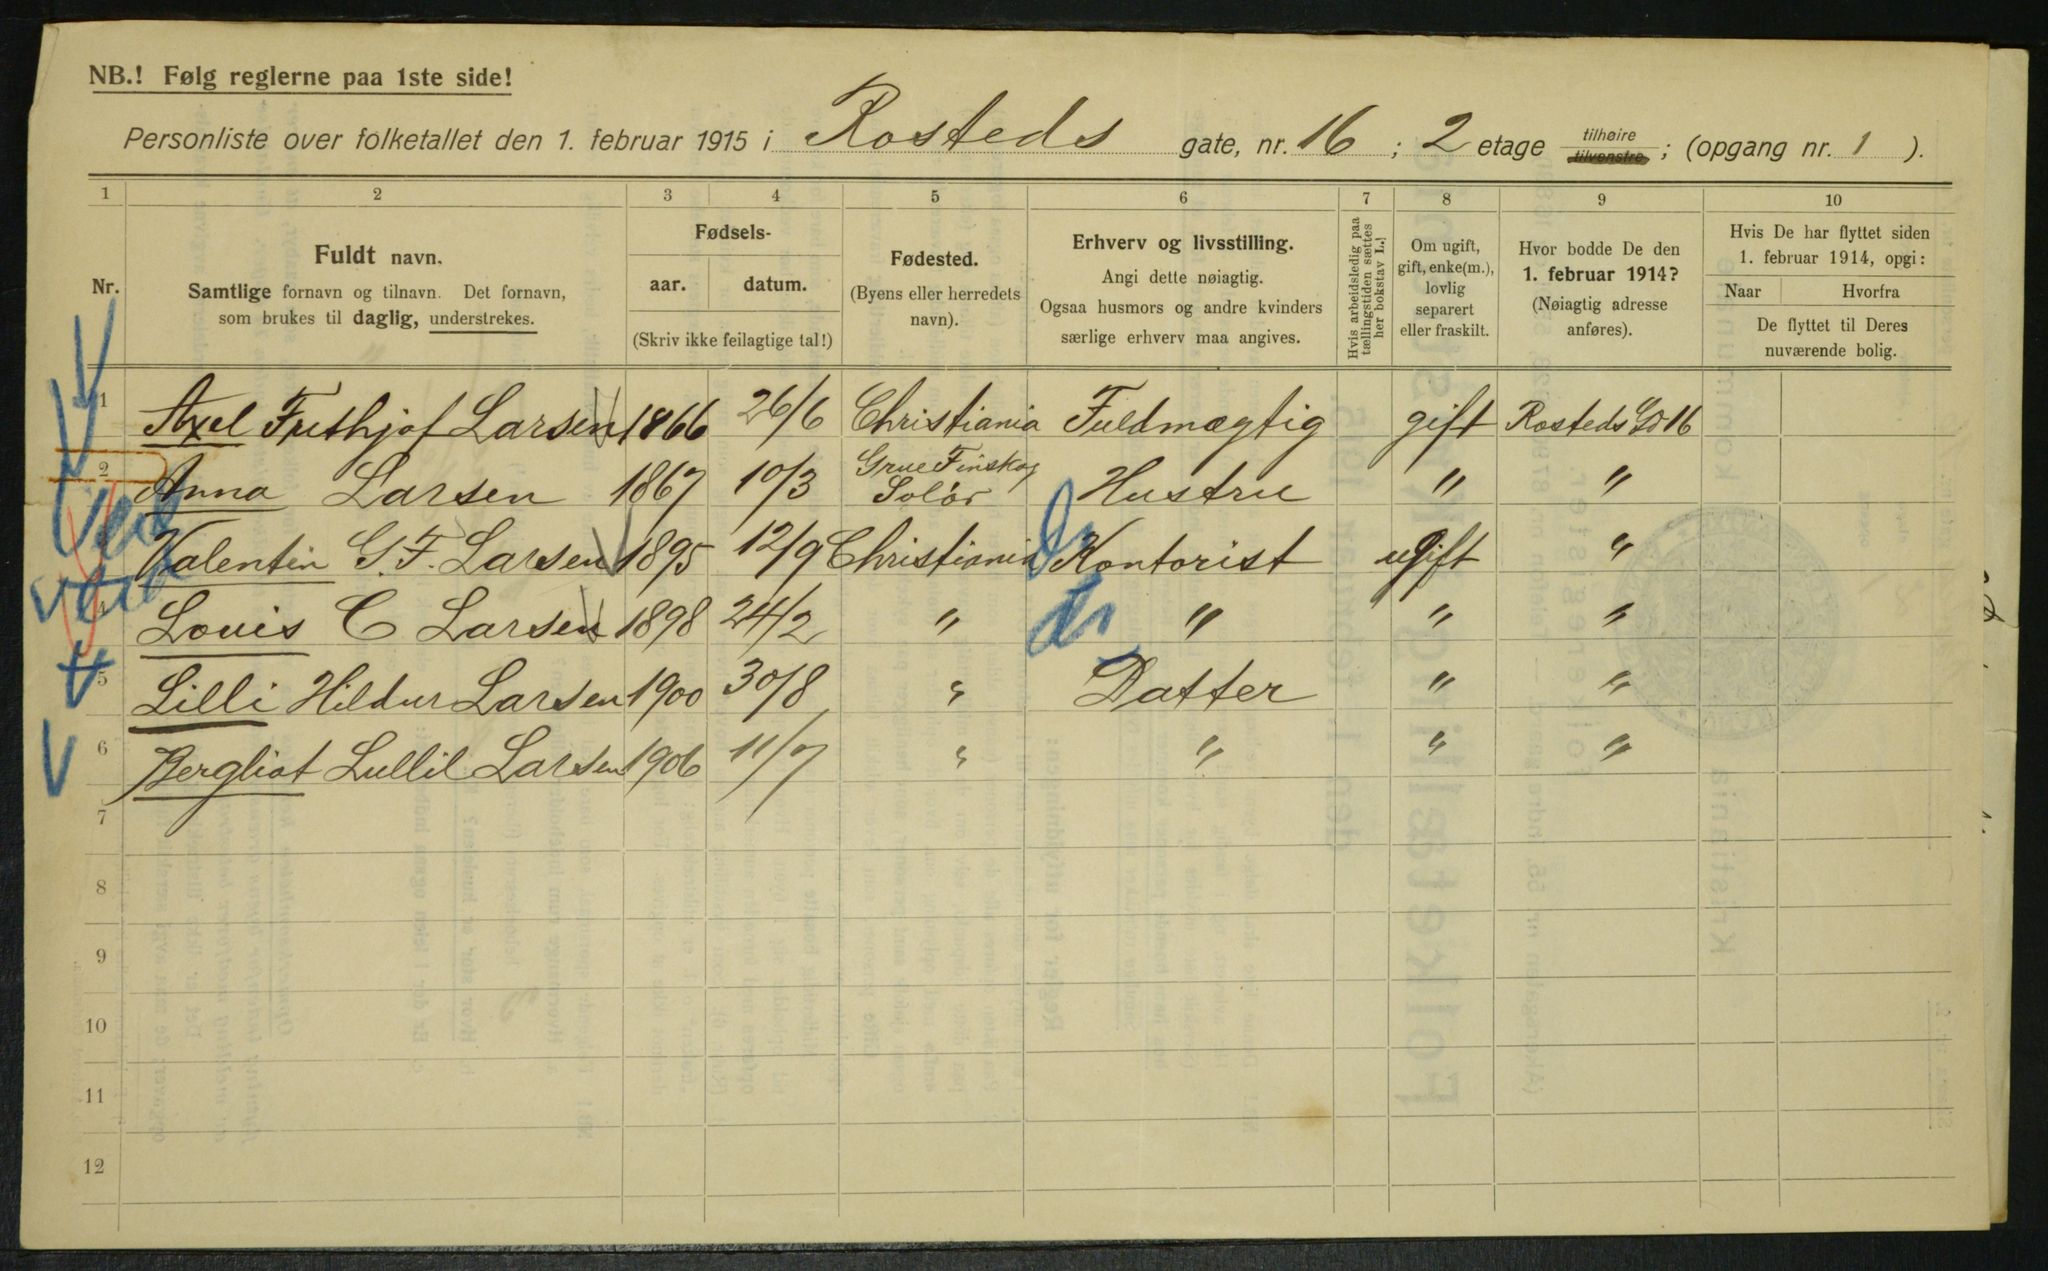 NB.! Følg reglerne paa 1ste side!
Personliste over folketallet den 1. februar 1915 i Rosteds gate, nr. 16 ; 2 etage tilhøire tilvenstre ; (opgang nr. 1 ).
1 2 3 4 5 6 7 8 9 10
Nr.
Fuldt navn.
Samtlige fornavn og tilnavn. Det fornavn,
som brukes til daglig, understrekes.
Fødsels-
aar. datum.
(Skriv ikke feilagtige tal!)
Fødested.
(Byens eller herredets
navn).
Erhverv og livsstilling.
Angi dette nøiagtig.
Ogsaa husmors og andre kvinders
særlige erhverv maa angives.
Hvis arbeidsledig paa
tællingstiden sættes
her bokstav L.!
Om ugift,
gift, enke(m.),
lovlig
separert
eller fraskilt.
Hvor bodde De den
1. februar 1914?
(Nøiagtig adresse
anføres).
Hvis De har flyttet siden
1. februar 1914, opgi:
Naar Hvorfra
De flyttet til Deres
nuværende bolig.
1 Axel Frithjof Larsen 1866 26/6 Christiania Fuldmægtig gift Rosteds Gd 16
2 Anna Larsen 1867 10/3 Grue Finskog Solør Hustru " "
Valentin G. F. Larsen 1895 12/9 Christiania Kontorist ugift "
4 Louis C Larsen 1898 24/2 " " " "
5 Lilli Hildur Larsen 1900 30/8 " Datter " "
6 Bergliot Lullil Larsen 1906 11/7 " " " "
7
8
9
10
11
12